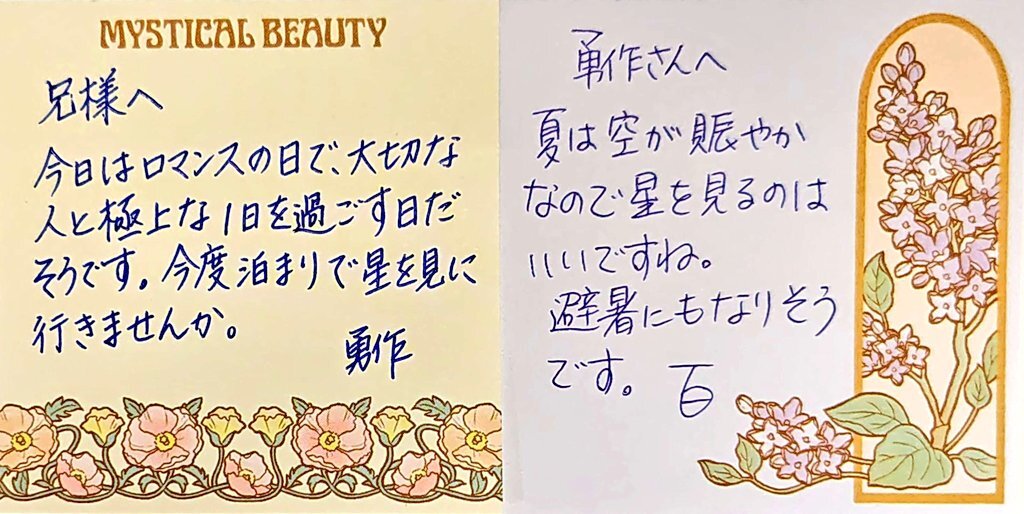 MYSTICAL BEAUTY
兄様へ
今日はロマンスの日で、大切な
人と極上な1日を過ごす日だ
そうです。今度泊まりで星を見に
行きませんか。
勇作
勇作さんへ
夏は空が賑やか
なので星を見るのは
いいですね。
避暑にもなりそう
です。百